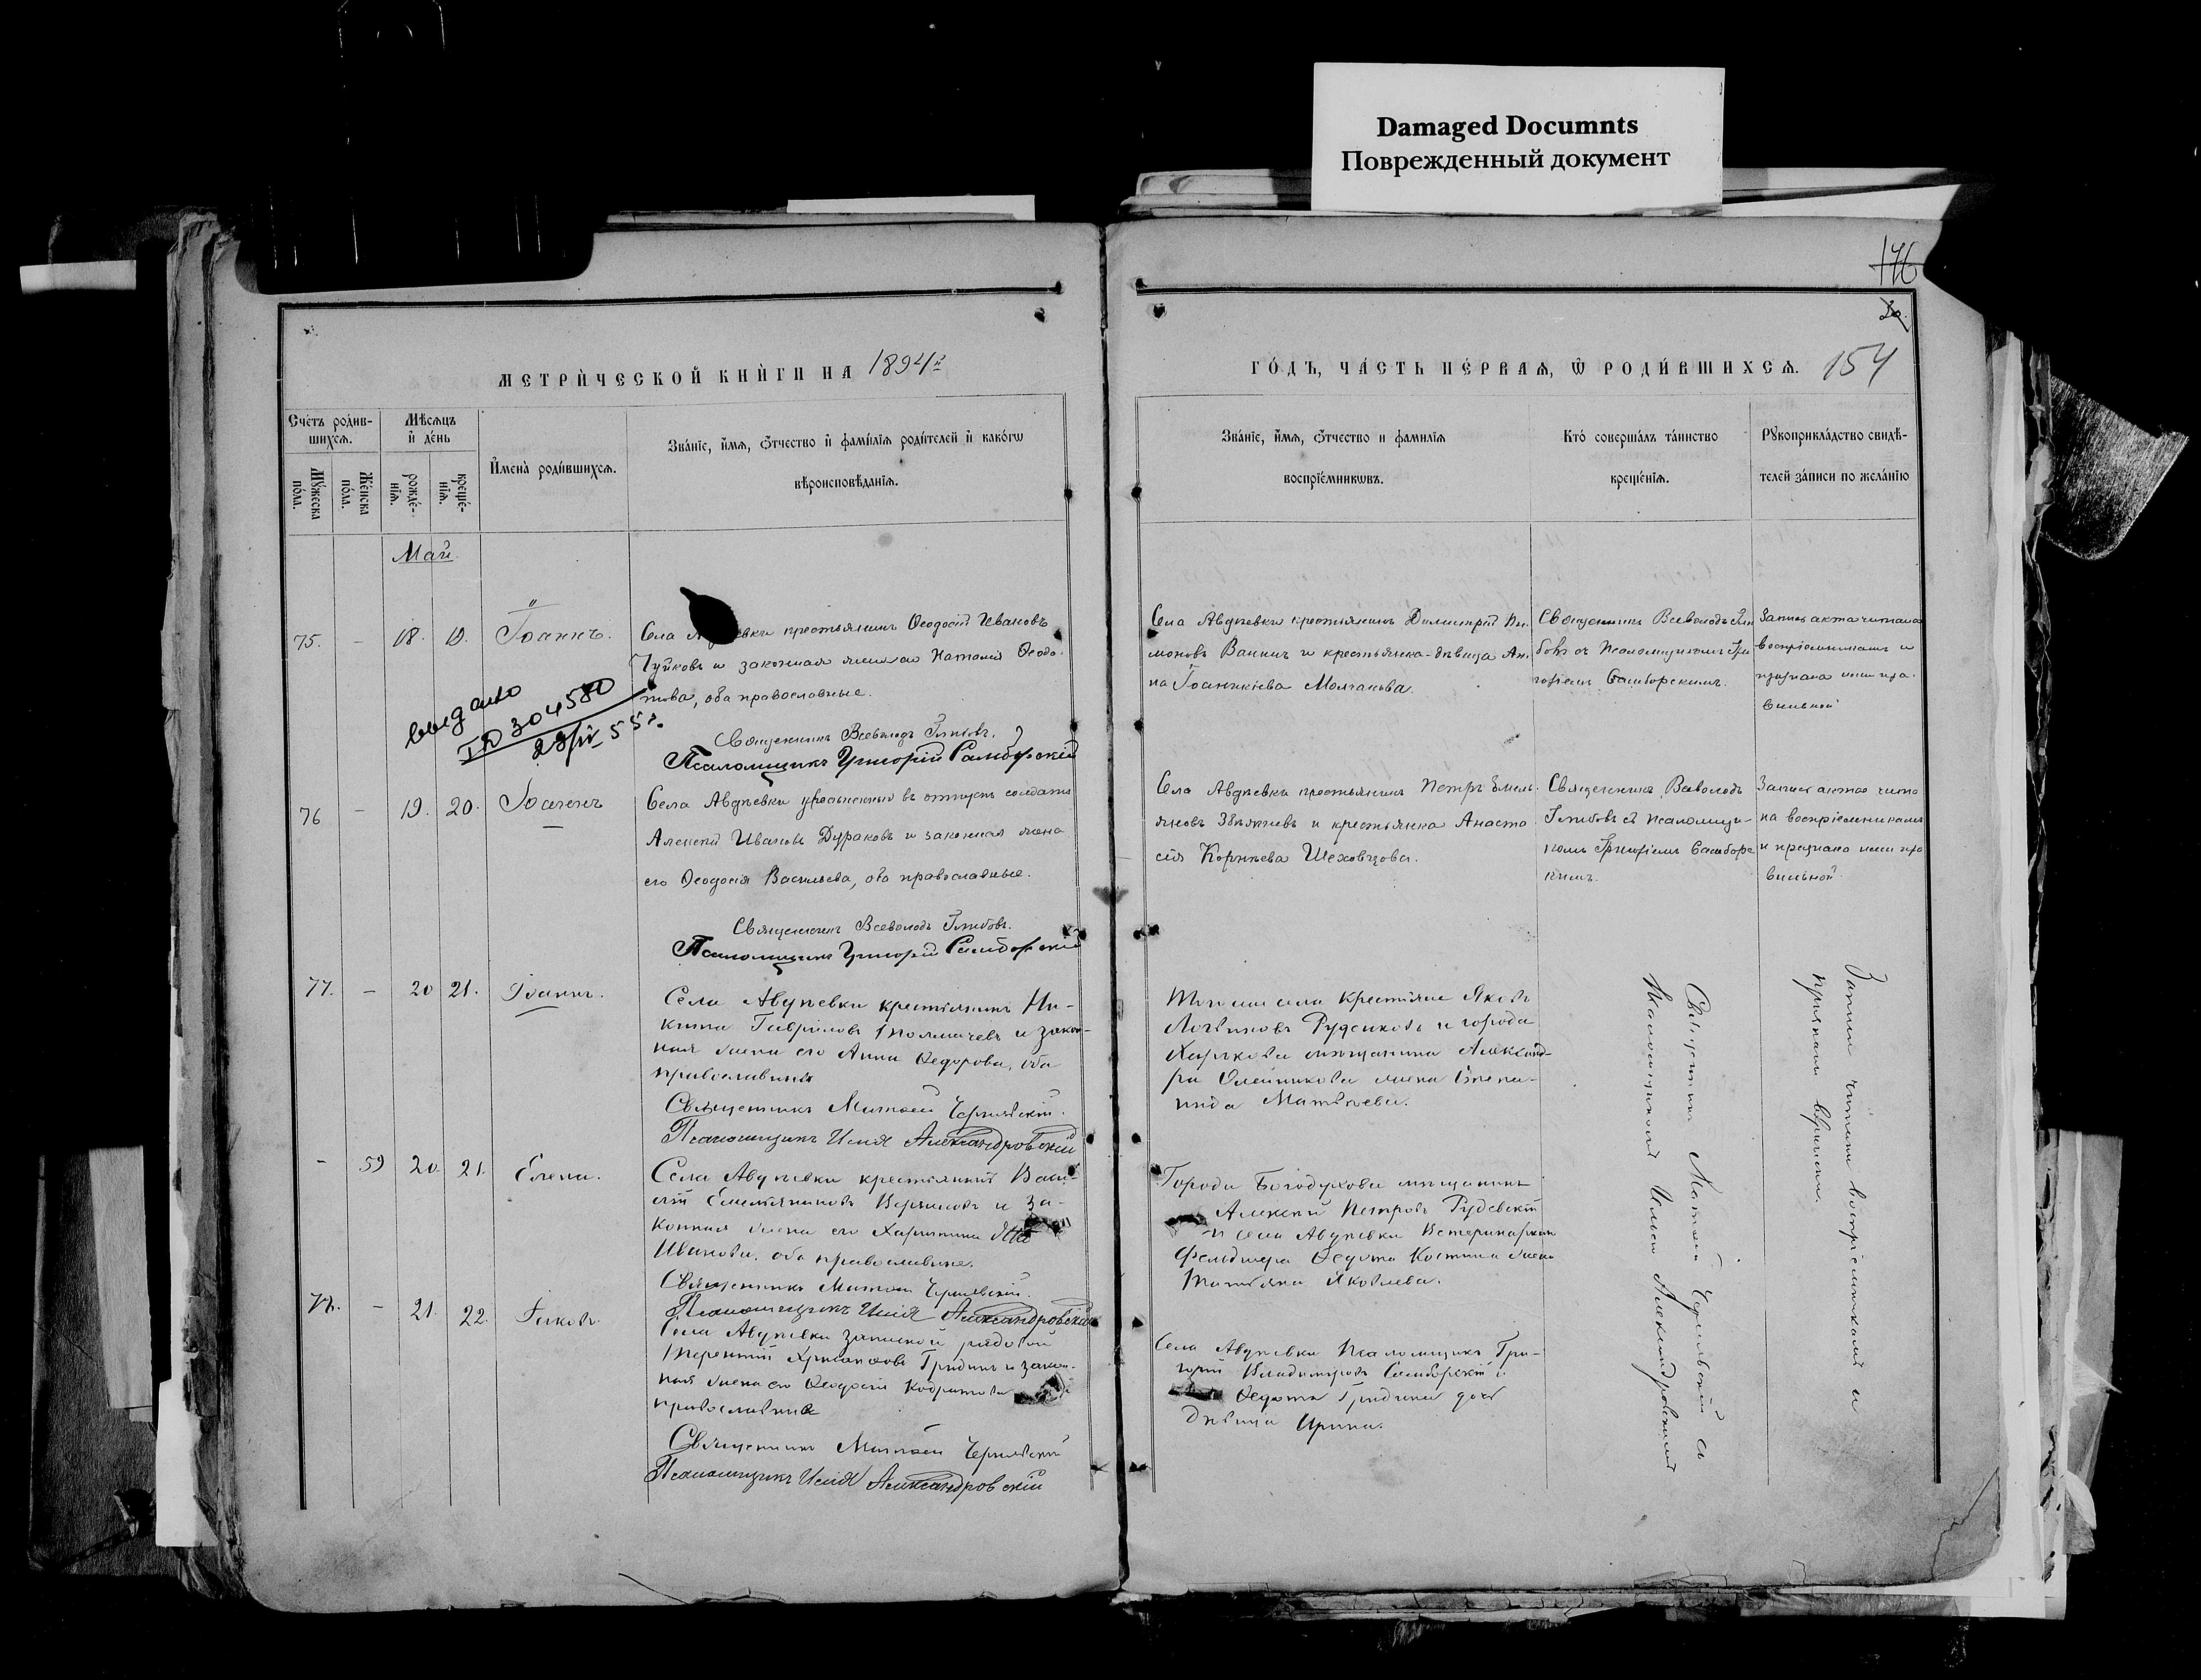 Damaged Documnts
Поврежденный документ
176
20.
МЕТРИЧЕСКОЙ КНИГИ НА 1894 г.
ГОДЪ, ЧАСТЬ ПЕРВАЯ, Ѡ РОДИВШИХСЯ. 154
Счетъ родив-
шихся.
Мужеска пола.
Женска пола.
Мѣсяцъ
и день
рожде-
нія.
креще-
нія.
Имена родившихся.
Званіе, имя, отчество и фамилія родителей и какогѡ
вѣроисповѣданія.
Званіе, имя, отчество и фамилія
воспріемникѡвъ.
Кто совершалъ таинство
крещенія.
Рукоприкладство свидѣ-
телей записи по желанію
Май
75. - 18. 19. Іоаннъ.
Села крестьянинъ Ѳеодосій Ивановъ
Чуйковъ и законная Наталія Ѳеодо-
това, оба православные.
Священникъ Всеволодъ Глѣбовъ.
Псаломщикъ Григорій Самборскій
Села Авдѣевки крестьянинъ Димитрій
моновъ Ванинъ и крестьянка-дѣвица Ан-
на Іоанникіева Молчанова.
Священникъ Всеволодъ Глѣ-
бовъ съ Псаломщикомъ Гри
горіемъ Самборскимъ.
Запись акта читана
воспріемникамъ и
признана ими пра-
вильной
выдано
ID 304580
28/IV 55 г.
76 - 19. 20. Іоаннъ
Села Авдѣевки уволенный въ отпускъ солдатъ
Алексѣй Ивановъ Дураковъ и законная жена
его Ѳеодосія Васильева, оба православные.
Священникъ Всеволодъ Глѣбовъ.
Псаломщикъ Григорій Самборскій
Села Авдѣевки крестьянинъ Петръ Емель-
яновъ Звягинцевъ и крестьянка Анаста
сія Корнѣева Шеховцова.
Священникъ Всеволодъ
Глѣбовъ съ Псаломщи-
комъ Григоріемъ Самборс
кимъ.
Запись акта чита
на воспріемникамъ
и признана ими пра
вильной
77. - 20 21. Іоаннъ.
Села Авдѣевки крестьянинъ Ни-
кита Гавріиловъ Толмачевъ и закон-
ная жена его Анна Ѳедорова, оба
православные
Священникъ Матѳей Чернявскій.
Псаломщикъ Илія Александровскій
села крестьяне Яковъ
Логвиновъ Руденковъ и города
Харькова мѣщанина Александ-
ра Олейникова жена Степа-
нида Матвѣева.
- 59 20. 21. Елена.
Села Авдѣевки крестьянинъ Васи-
лій Емельяновъ и за-
конная жена его Харитина
Иванова, оба православные.
Священникъ Матѳей Чернявскій.
Псаломщикъ Илія Александровскій
Города Богодухова мѣщанинъ
Алексѣй Петровъ Рудевскій
и села Авдѣевки Ветеринарнаго
фельдшера Ѳедота Костина жена
Татьяна Яковлева.
78. - 21. 22. Іаковъ.
Села Авдѣевки запасной рядовой
Терентій Хрисанфовъ Гридинъ и закон-
ная жена его Ѳеодосія Кодратова
православные
Священникъ Матѳей Чернявскій
Псаломщикъ Илія Александровскій
Села Авдѣевки Псаломщикъ Гри-
горій Владиміровъ Самборскій и
Ѳедота Гридина дочь
дѣвица Ирина.
Священникъ Матѳей Чернявскій съ
Псаломщикомъ Иліею Александровскимъ
Записи читаны воспріемникамъ и
признаны вѣрными.